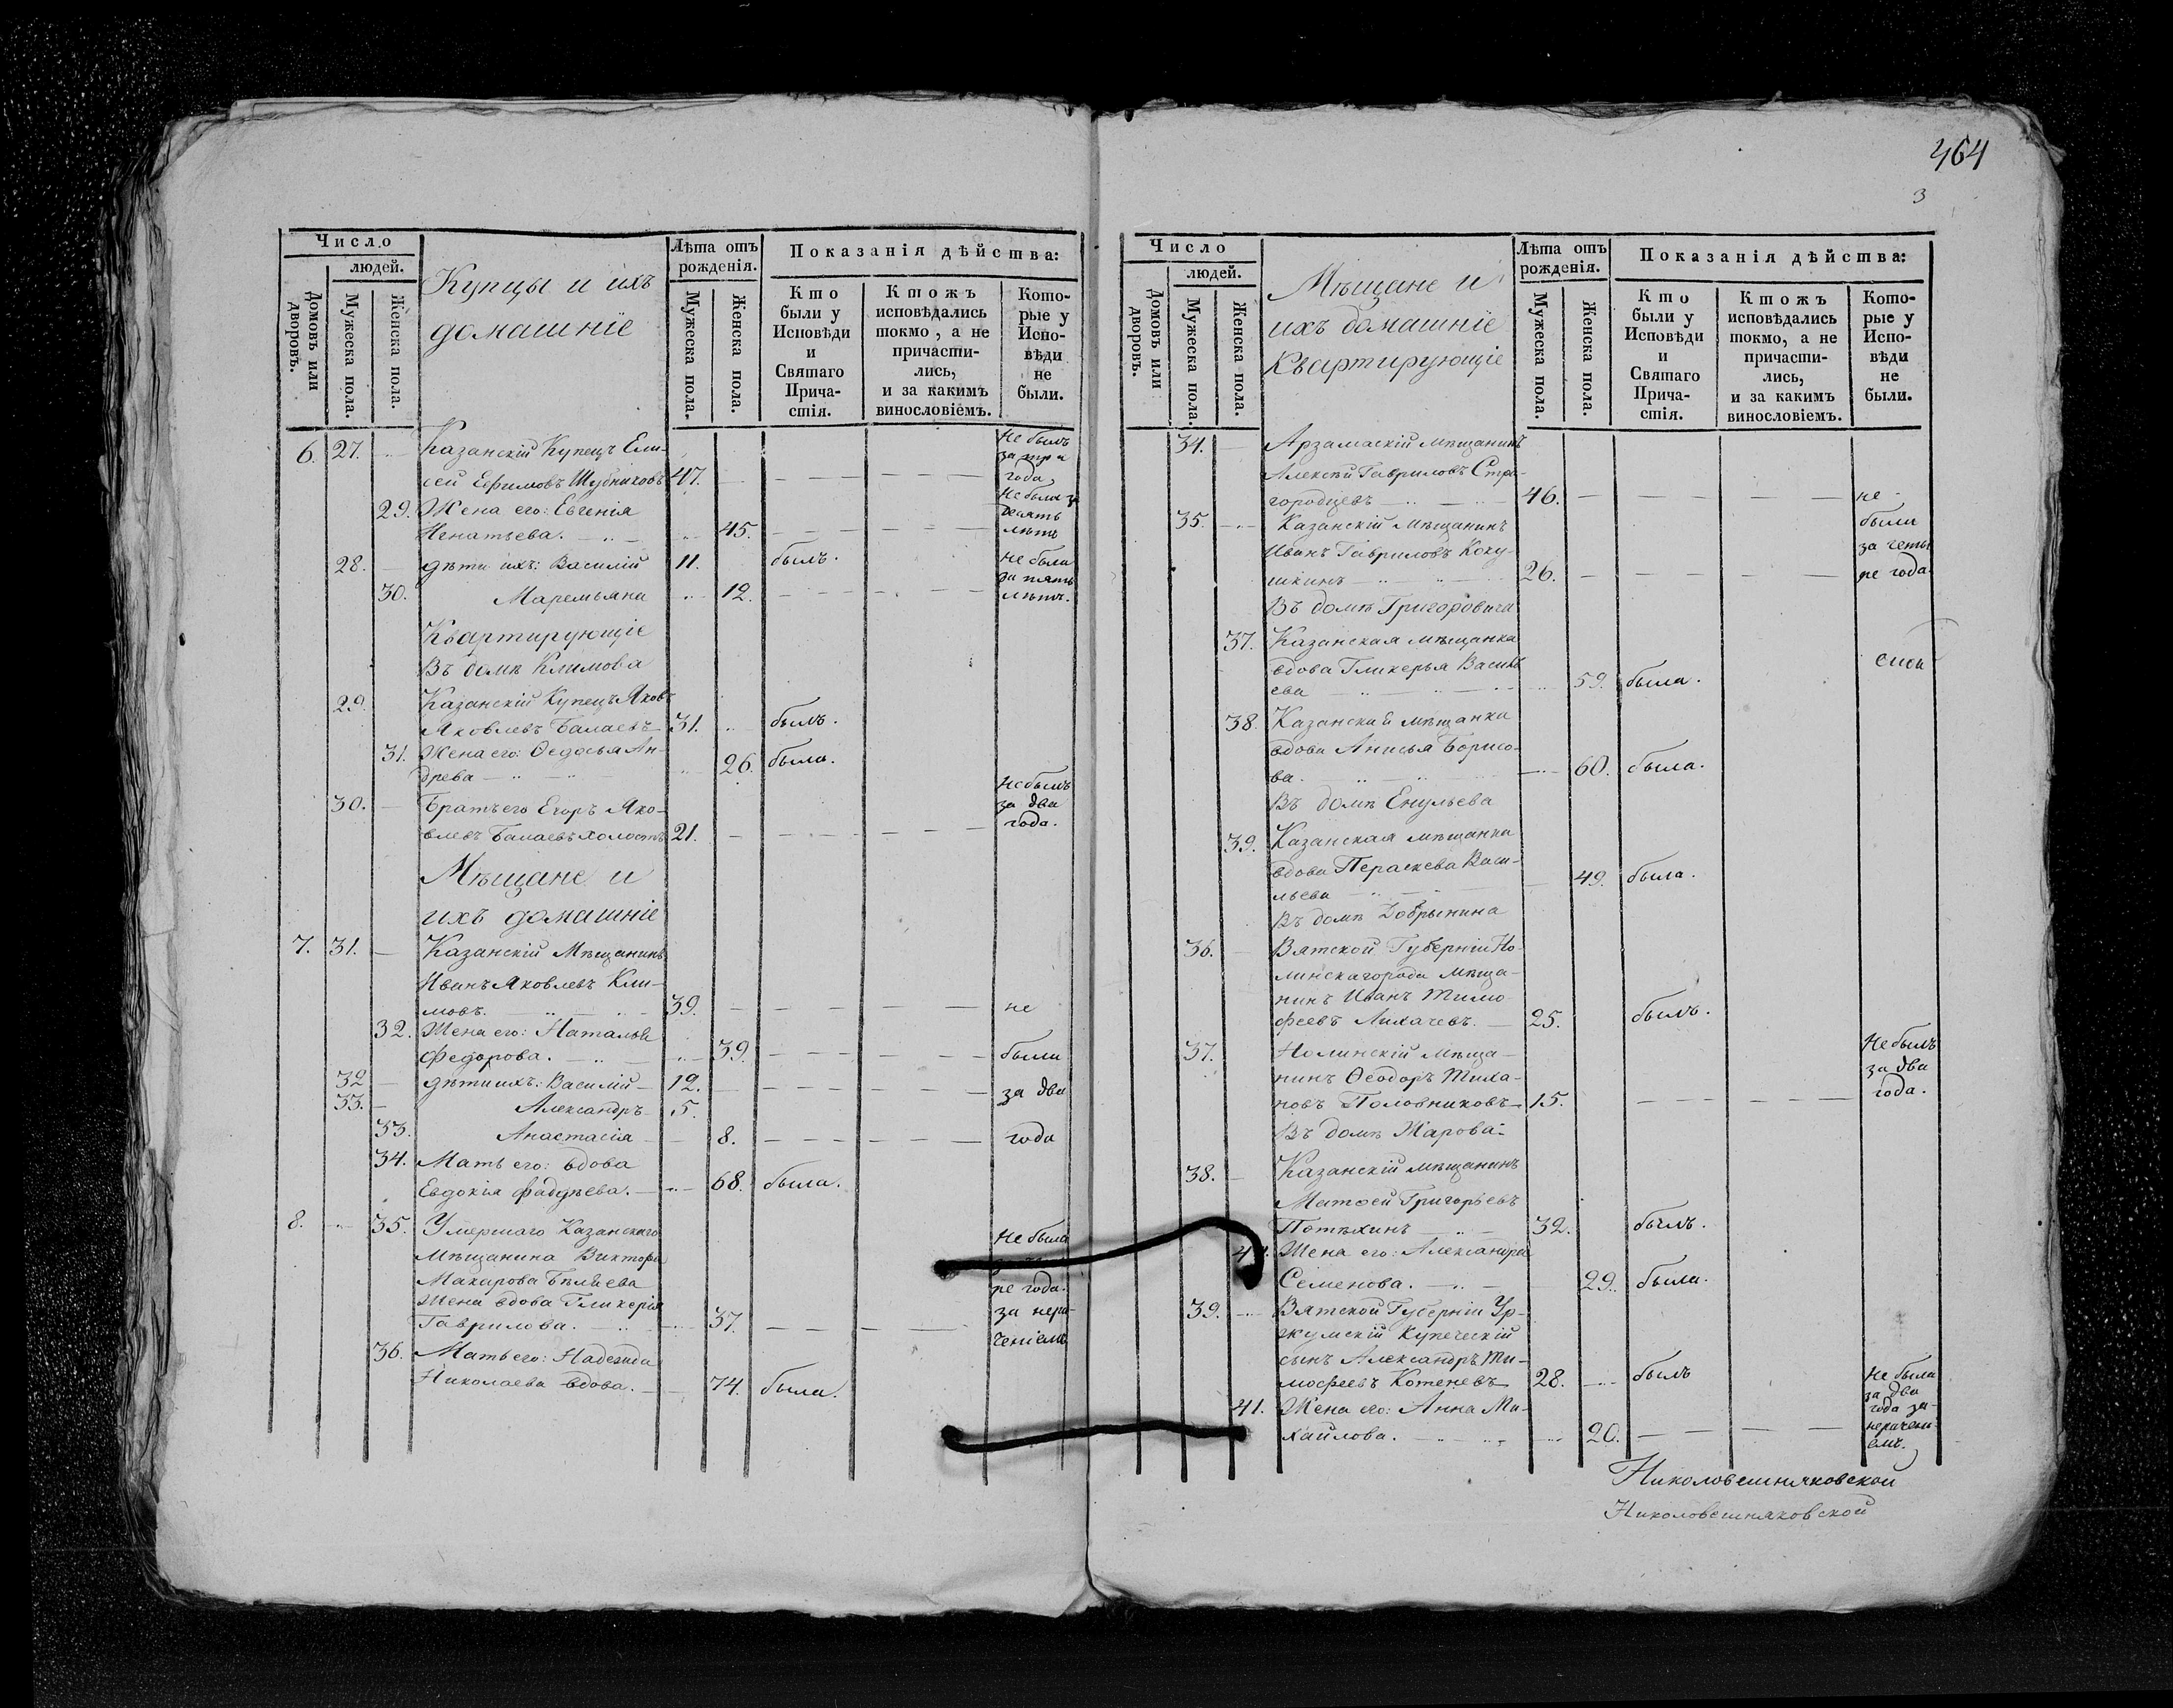 464
3
Число
людей.
Домовъ или дворовъ.
Мужеска пола.
Женска пола.
Купцы и ихъ
домашніе
Лѣта отъ
рожденія.
Мужеска пола.
Женска пола.
Показанія дѣйства:
Кто
были у
Исповѣди
и
Святаго
Прича-
стія.
Ктожъ
исповѣдались
токмо, а не
причасти-
лись,
и за какимъ
винословіемъ.
Кото-
рые у
Испо-
вѣди
не
были.
6. 27. Казанскій Купецъ Ели-
сей Ефимовъ Шубниковъ 47. Не былъ
за три
года
29. Жена его: Евгенія
Игнатьева. 45. Не была за
десять
лѣтъ
28. дѣти ихъ: Василій 11. былъ.
30. Маремьяна 12. не была
за пять
лѣтъ.
Квартирующіе
Въ домѣ Климова
29. Казанскій Купецъ Яковъ
Яковлевъ Балаевъ 31. былъ.
31. Жена его: Ѳедосья Ан-
древа 26. была.
30. Братъ его Егоръ Яко-
влевъ Балаевъ холостъ 21. Не былъ
за два
года.
Мѣщане и
ихъ домашніе
7. 31. Казанскій Мѣщанинъ
Иванъ Яковлевъ Кли-
мовъ. 39. не
32. Жена его: Наталья
Федорова. 39. были
32 дѣти ихъ: Василій 12. за два
33. Александръ 5.
33. Анастасія 8. года
34. Мать его: вдова
Евдокія Фадѣева. 68. была.
8. 35. Умершаго Казанскаго
Мѣщанина Виктора
Макарова Бѣляева
Жена вдова Гликерія
Гаврилова. 37. Не была
ре года.
за нера-
ченіемъ
36. Мать его: Надежда
Николаева вдова. 74. была.
Число
людей.
Домовъ или дворовъ.
Мужеска пола.
Женска пола.
Мѣщане и
ихъ домашніе
Квартирующіе
Лѣта отъ
рожденія.
Мужеска пола.
Женска пола.
Показанія дѣйства:
Кто
были у
Исповѣди
и
Святаго
Прича-
стія.
Ктожъ
исповѣдались
токмо, а не
причасти-
лись,
и за какимъ
винословіемъ.
Кото-
рые у
Испо-
вѣди
не
были.
34. Арзамаскій мѣщанинъ
Алексѣй Гавриловъ Стра-
городцевъ 46. не
35. Казанскій Мѣщанинъ были
Иванъ Гавриловъ Коку- за четы
шкинъ 26. ре года.
Въ домѣ Григоровича
37. Казанская мѣщанка
вдова Гликерья Василь
ева 59. была.
38. Казанская мѣщанка
вдова Анисья Борисо-
ва. 60. была.
Въ домѣ Енульева
39. Казанская мѣщанка
вдова Пераскева Васи-
льева 49. была.
Въ домѣ Добрынина
36. Вятской Губерніи Но
линска города мѣща-
нинъ Иванъ Тимо
феевъ Лихачевъ. 25. былъ.
37. Нолинскій мѣща-
нинъ Ѳеодоръ Тиха-
новъ Половниковъ 15. Не былъ
за два
года.
Въ домѣ Жарова
38. Казанскій мѣщанинъ
Матѳей Григорьевъ
Потѣхинъ 32. былъ.
Жена его: Александра
Семенова. 29. была.
39. Вятской Губерніи Ур-
жумскій Купеческій
сынъ Александръ Ти-
мофеевъ Котеневъ 28. былъ
41. Жена его: Анна Ми-
хайлова. 20. Не была
за два
года за
нерачені-
емъ.
Николовешняковской
Николовешняковской